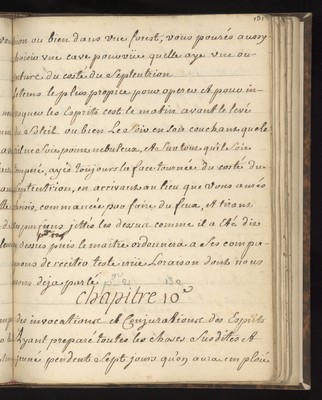 181
ou bien dans vne forest, vous pourés aussy
choisir vne cave pourvüe quelle aye vne ou-
verture du costé du Septentrion
le plus propice pour operer et pour in-
les Esprits cest le matin avant le levé
du Soleil ou bien Le Soir en Soir couchant quele
ne Soie point nebuleux, et Surtout quele Soie
ayés toujours la face tournée du costé du
Septentrion, en arrivant au lieu que vous aurés
choisi, commancés par faire du feux, et tirant
jettés les dessus comme il a été dis
dessus puis le maitre ordonnera a Ses compa-
gnons de reciter teste nüe Loraison dont nous
avons deja parlé
Chapitre 10
des invocations et Conjurations des Esprits
Ayant preparé toutes les choses Susdites et
jeuné pendent Sept jours qu'on aura emploïé